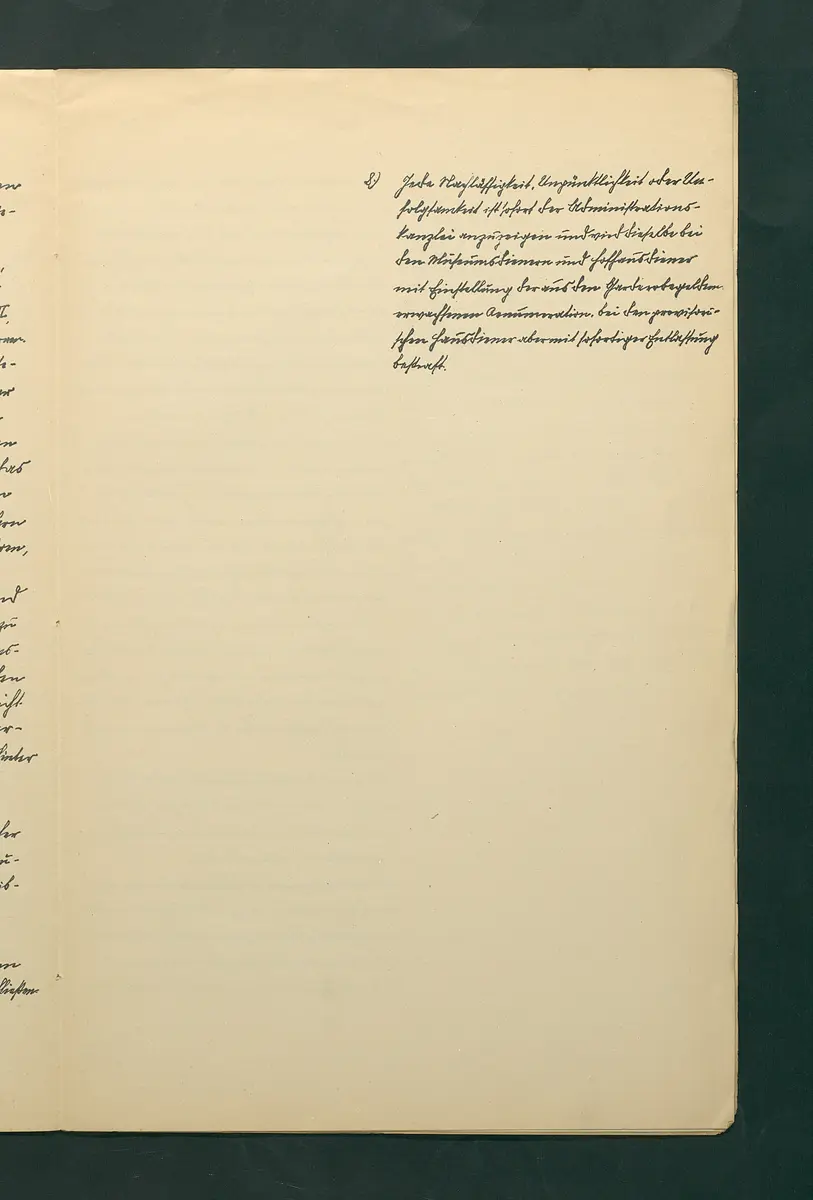 8.) Jede Nachlässigkeit, Unpünktlichkeit oder Un-
folgsamkeit ist sofort der Administrations-
kanzlei anzuzeigen und wird dieselbe bei
den Museumsdienern und Hofhausdiener
mit Einstellung der aus den Garderobegeldern
erwachsenen Remuneration, bei den provisori-
schen Hausdiener aber mit sofortiger Entlassung
bestraft.